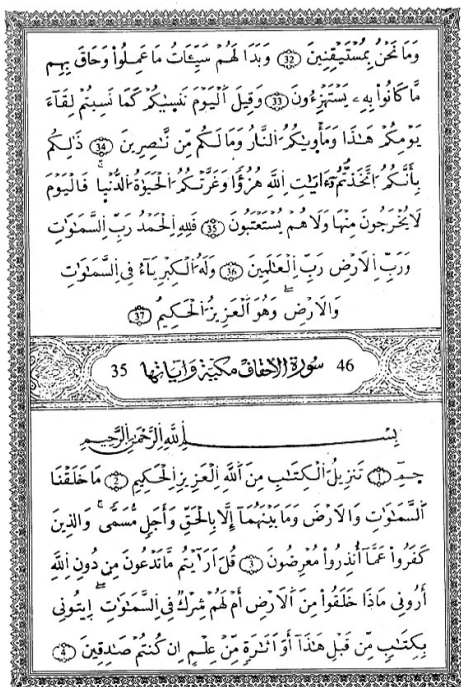 وَمَا نَحْنُ بِمُسْتَيْقِنِينَ 32 وَبَدَا لَهُمْ سَيِّـَٔاتُ مَا عَمِلُوا۟ وَحَاقَ بِهِم
مَّا كَانُوا۟ بِهِۦ يَسْتَهْزِءُونَ 33 وَقِيلَ اَ۬لْيَوْمَ نَنس۪يٰكُمْ كَمَا نَسِيتُمْ لِقَآءَ
يَوْمِكُمْ هَٰذَا وَمَأْو۪يٰكُمُ اُ۬لنَّارُ وَمَا لَكُم مِّن نَّٰصِرِينَ 34 ذَٰلِكُم
بِأَنَّكُمُ اُ۪تَّخَذتُّمُۥٓ ءَايَٰتِ اِ۬للَّهِ هُزُؤًا وَغَرَّتْكُمُ اُ۬لْحَيَوٰةُ اُ۬لدُّنْي۪ا فَالْيَوْمَ
لَا يُخْرَجُونَ مِنْهَا وَلَا هُمْ يُسْتَعْتَبُونَ 35 فَلِلهِ اِ۬لْحَمْدُ رَبِّ اِ۬لسَّمَٰوَٰتِ
وَرَبِّ اِ۬لَارْضِ رَبِّ اِ۬لْعَٰلَمِينَ 36 وَلَهُ اُ۬لْكِبْرِيَآءُ فِي اِ۬لسَّمَٰوَٰتِ
وَالَارْضِۖ وَهُوَ اَ۬لْعَزِيزُ اُ۬لْحَكِيمُ 37
46 سورة الاحقاف مكية وءاياتها 35
بِسْمِ اِ۬للَّهِ اِ۬لرَّحْمَٰنِ اِ۬لرَّحِيمِ
ح۪مٓ 1 تَنزِيلُ اُ۬لْكِتَٰبِ مِنَ اَ۬للَّهِ اِ۬لْعَزِيزِ اِ۬لْحَكِيمِ 2 مَا خَلَقْنَا
اَ۬لسَّمَٰوَٰتِ وَالَارْضَ وَمَا بَيْنَهُمَآ إِلَّا بِالْحَقِّ وَأَجَلٖ مُّسَمّيٗۖ وَالذِينَ
كَفَرُوا۟ عَمَّآ أُنذِرُوا۟ مُعْرِضُونَ 3 قُلَ اَرَٰٓيْتُم مَّا تَدْعُونَ مِن دُونِ اِ۬للَّهِ
أَرُونِي مَاذَا خَلَقُوا۟ مِنَ اَ۬لَارْضِ أَمْ لَهُمْ شِرْكٞ فِي اِ۬لسَّمَٰوَٰتِۖ اِيتُونِي
بِكِتَٰبٖ مِّن قَبْلِ هَٰذَآ أَوَ اَثَٰرَةٖ مِّنْ عِلْمٍ اِن كُنتُمْ صَٰدِقِينَ 4